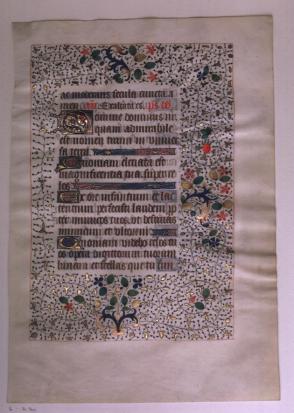 ac moderans secula cuncta a
men Exultate ps co
Domine dominus n
quam admirabile
est nomen tuum in univer
sa terra
Quoniam elevata est
magnificentia tua super ce
los
Ex ore infantium et lac
tencium perfecisti laudem p
ter inimicos tuos ut destruas
inimicum et ultorem
Quoniam videbo celos tu
os opera digitorum tuorum
lunam et stellas que tu fun